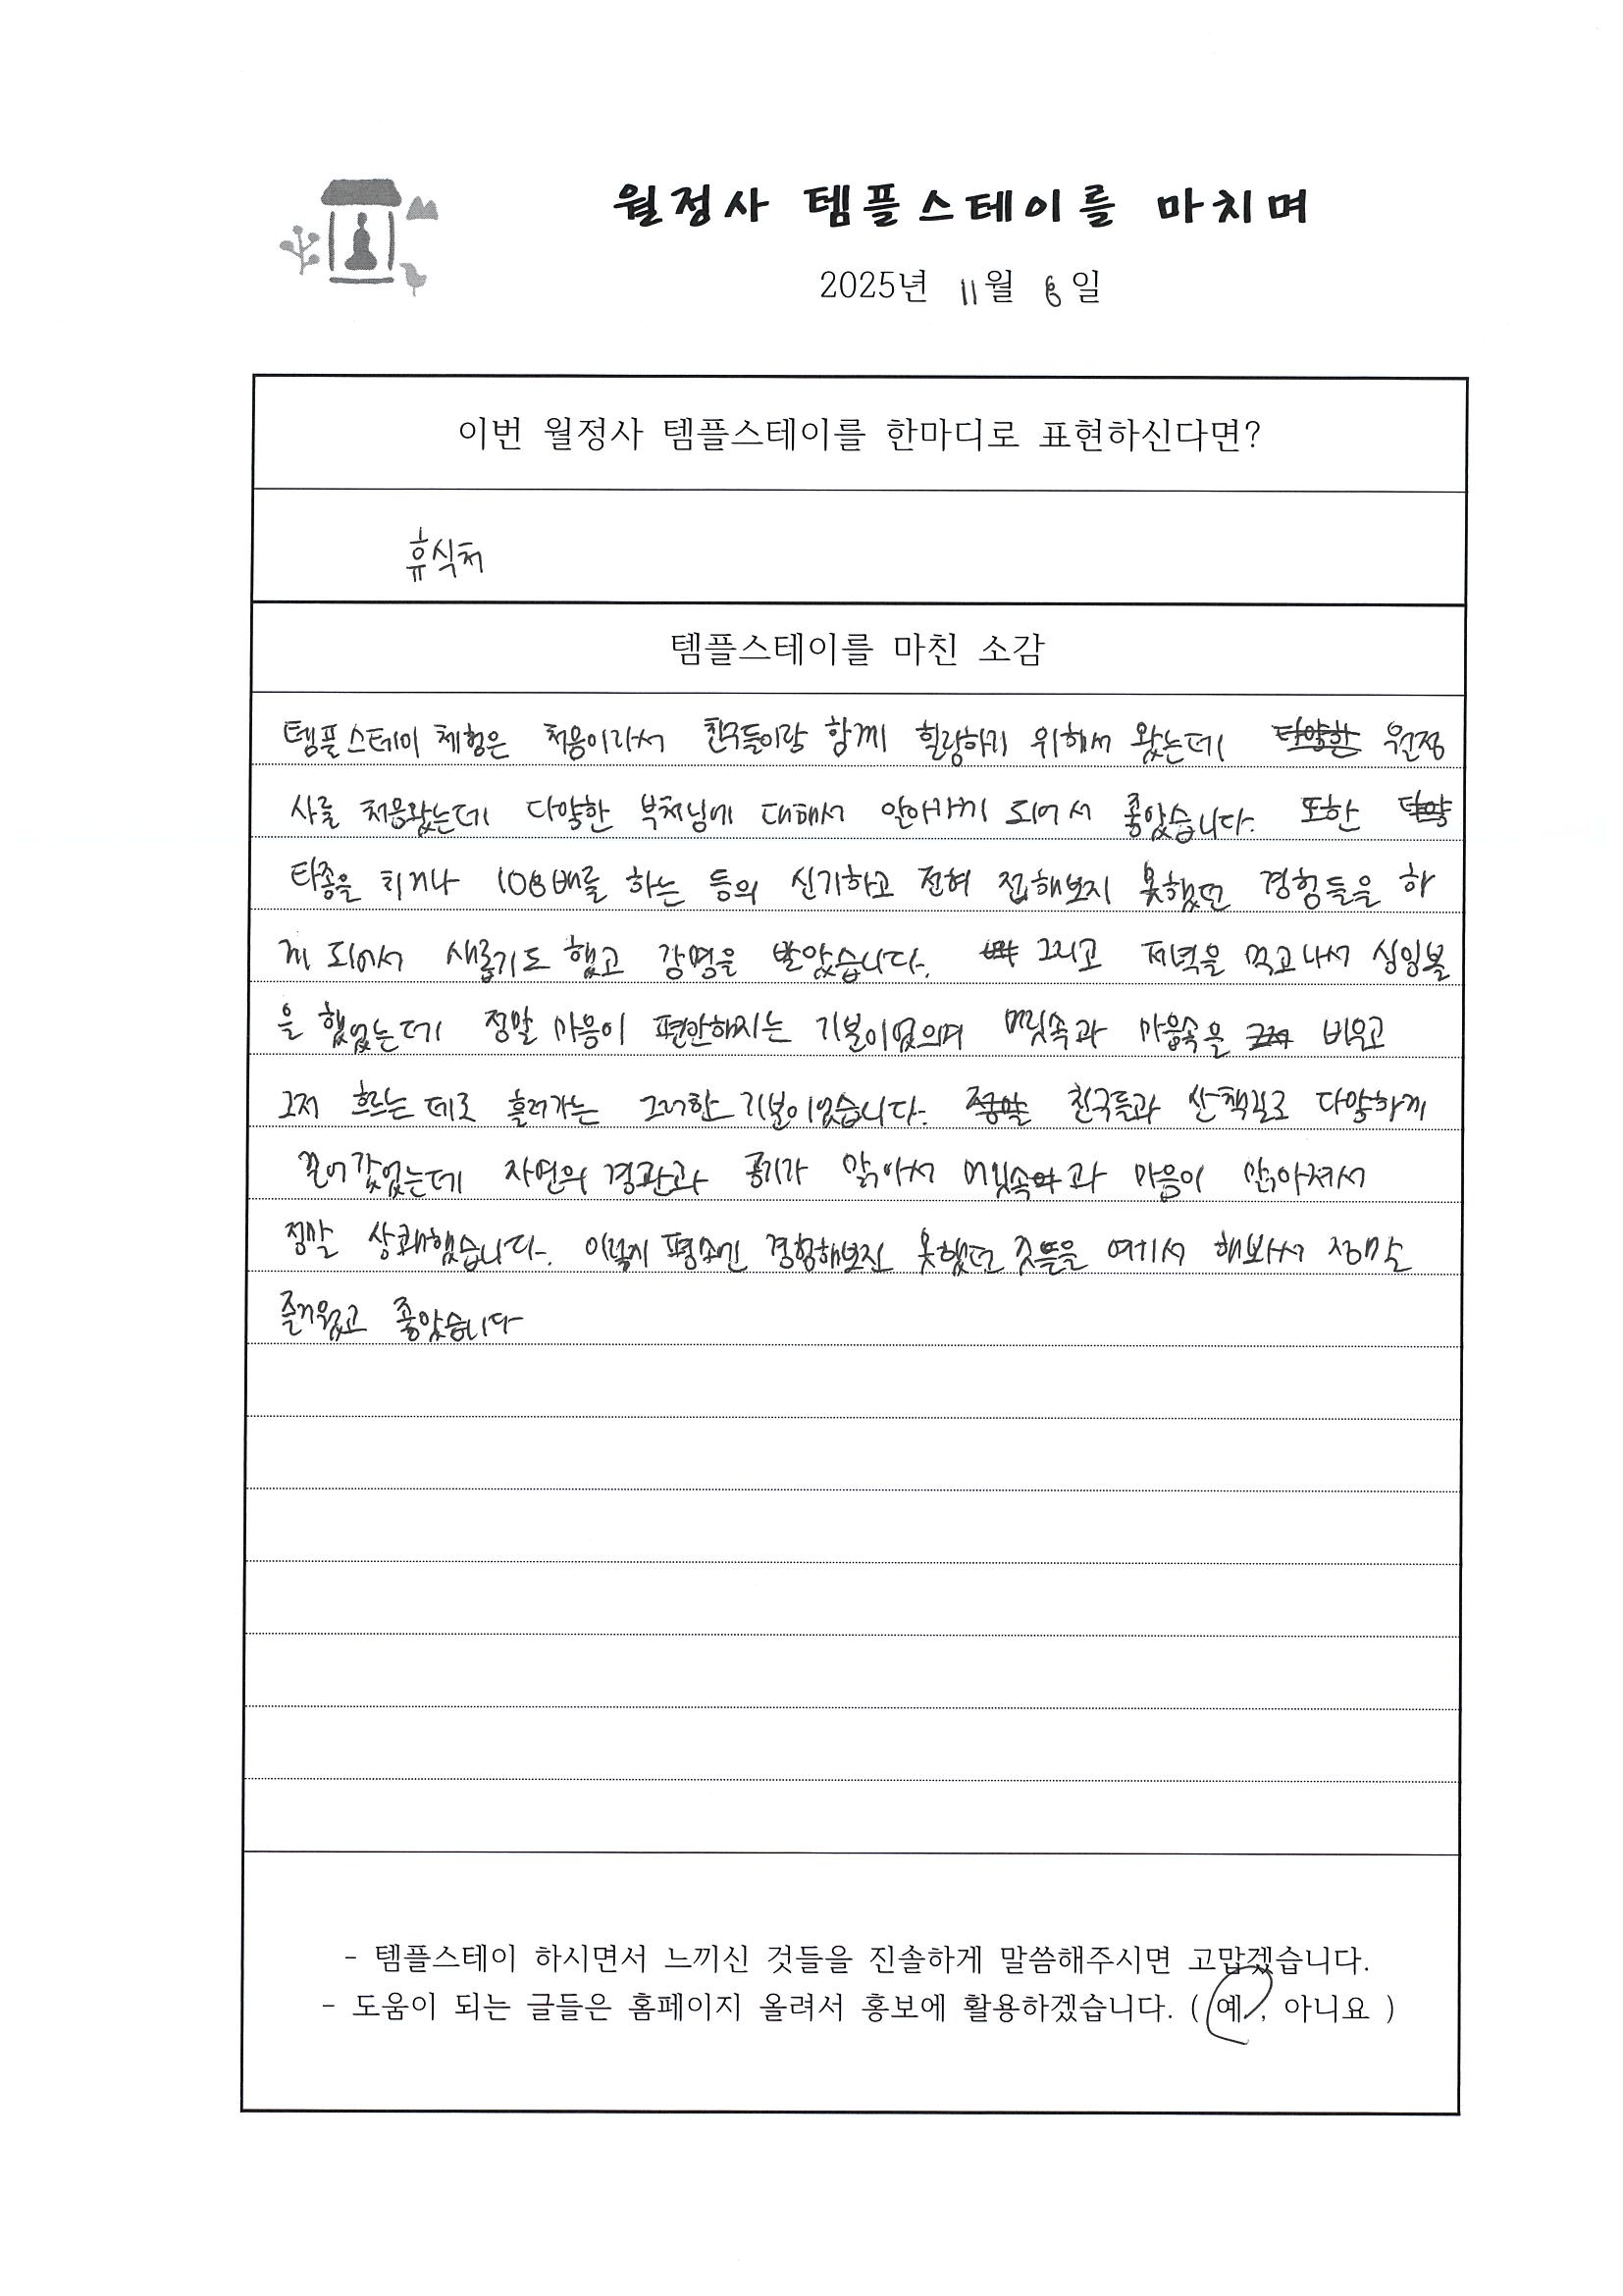 월정사 템플스테이를 마치며
2025년 11월 6일
이번 월정사 템플스테이를 한마디로 표현하신다면?
휴식처
템플스테이를 마친 소감
템플스테이 체험은 처음이라서 친구들이랑 함께 힐링하기 위해서 왔는데 다양한 월정
사를 처음왔는데 다양한 부처님에 대해서 알아가게 되어서 좋았습니다. 또한 다양
타종을 치거나 108배를 하는 등의 신기하고 전혀 접해보지 못했던 경험들을 하
게 되어서 새롭기도 했고 감명을 받았습니다. 그리고 저녁을 먹고나서 싱잉볼
을 했었는데 정말 마음이 편안해지는 기분이었으며 머릿속과 마음속을 비우고
그저 흐르는 데로 흘러가는 그러한 기분이었습니다. 정말 친구들과 산책길로 다양하게
걸어갔었는데 자연의 경관과 공기가 맑아서 머릿속과 마음이 맑아져서
정말 상쾌했습니다. 이렇게 평소엔 경험해보진 못했던 것들을 여기서 해봐서 정말
즐거웠고 좋았습니다
- 템플스테이 하시면서 느끼신 것들을 진솔하게 말씀해주시면 고맙겠습니다.
- 도움이 되는 글들은 홈페이지 올려서 홍보에 활용하겠습니다. ( 예 , 아니요 )